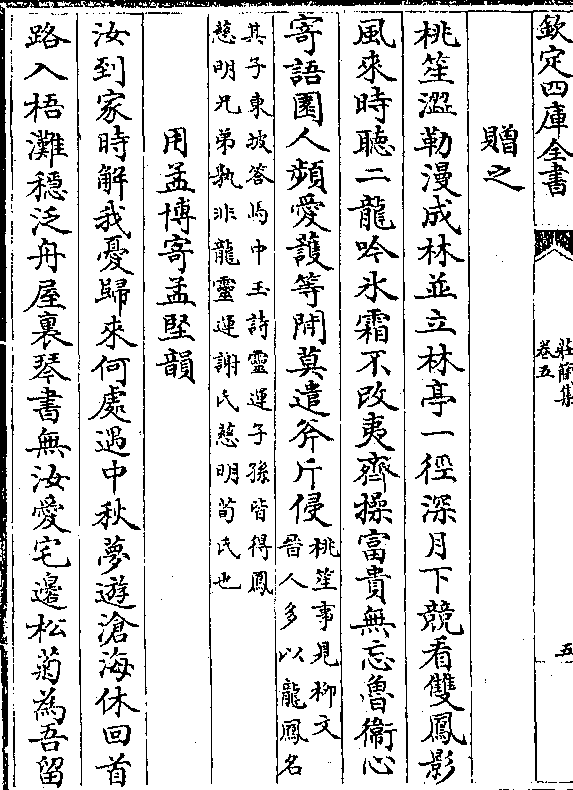 欽定四庫全書
莊簡集
卷五
五
贈之
桃笙澀勒漫成林並立林亭一徑深月下競看雙鳳影
風來時聽二龍吟氷霜不改夷齊操富貴無忘魯衞心
寄語園人頻愛護等閒莫遣斧斤侵桃笙事見柳文
晉人多以龍鳳名
其子東坡答馬中玉詩靈運子孫皆得鳳
慈明兄弟孰非龍靈運謝氏慈明荀氏也
用孟博寄孟堅韻
汝到家時解我憂歸來何處遇中秋夢遊滄海休回首
路入梧灘穩泛舟屋裏琴書無汝愛宅邊松菊為吾留